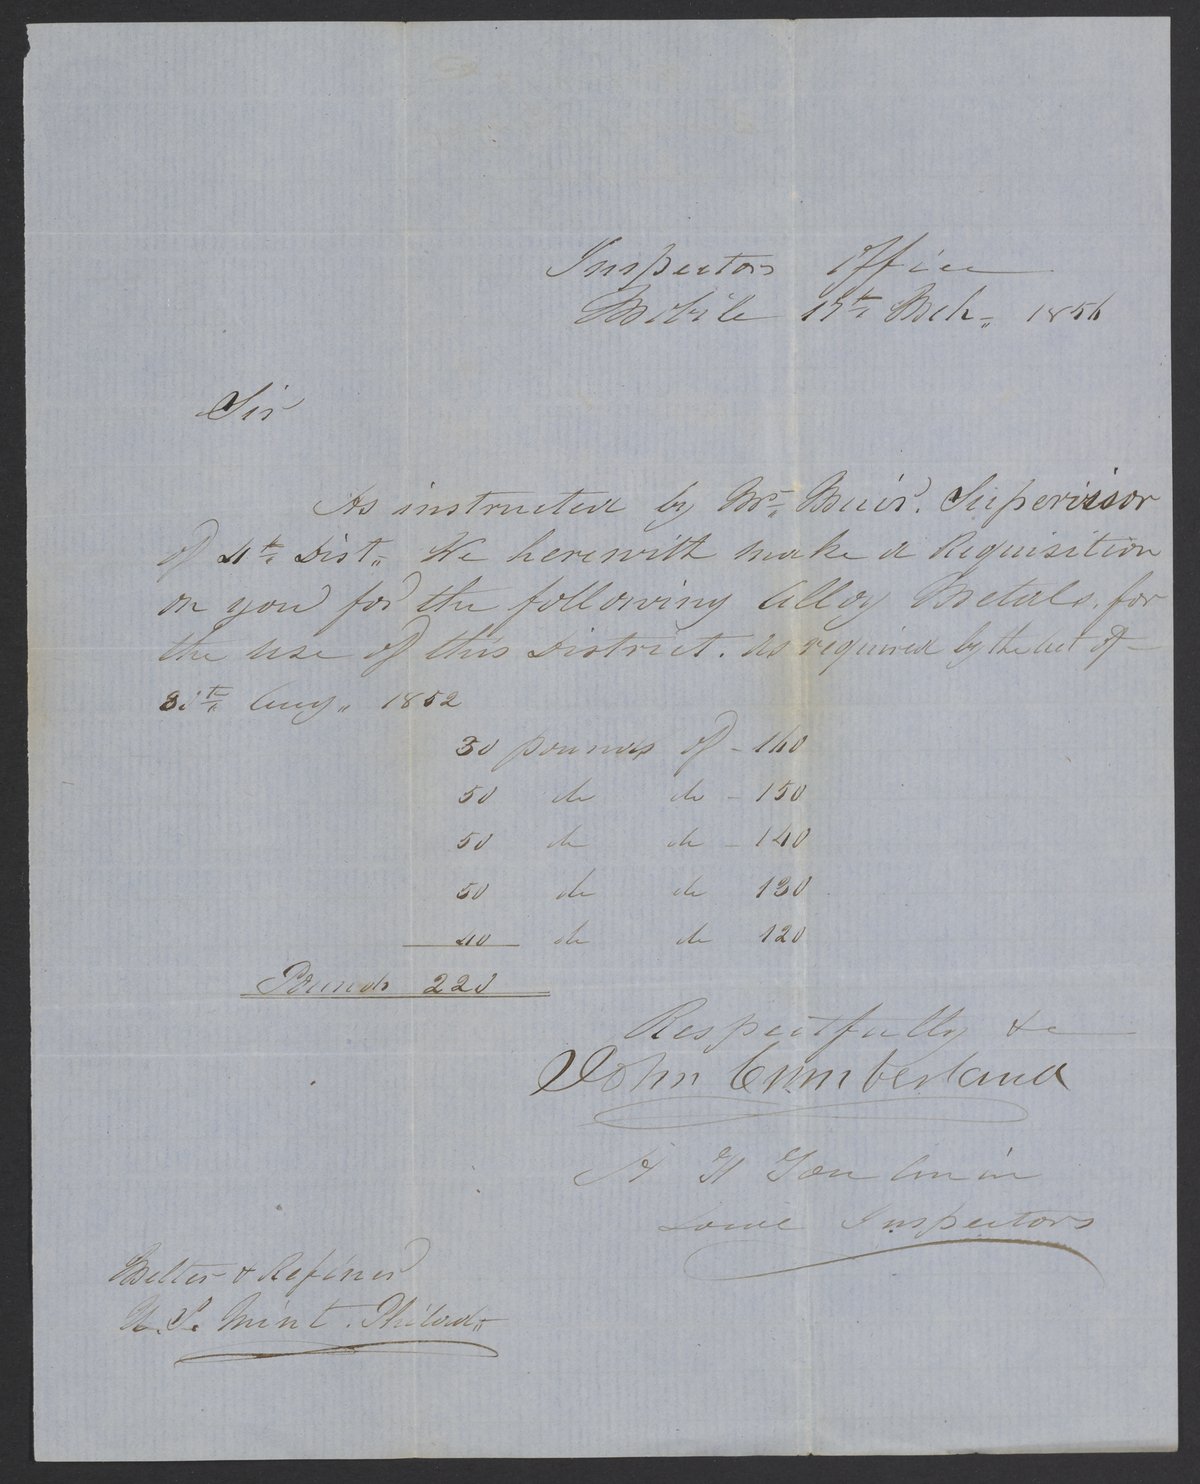 Inspectors Office
Mobile 17th Mch. 1856
Sir
As instructed by Mr. Muir. Supervisor
of 4th Dist. We herewith make a Requisition
on you for the following Alloy Metals. for
the use of this District. As required by the act of
30th Aug. 1852
30 pounds of - 160
50 do do - 150
50 do do - 140
50 do do 130
40 do do 120
Pounds 220
Respectfully &c
John Cumberland
H Toulmin
Local Inspectors
Melter & Refiner
U. S. Mint. Philada.